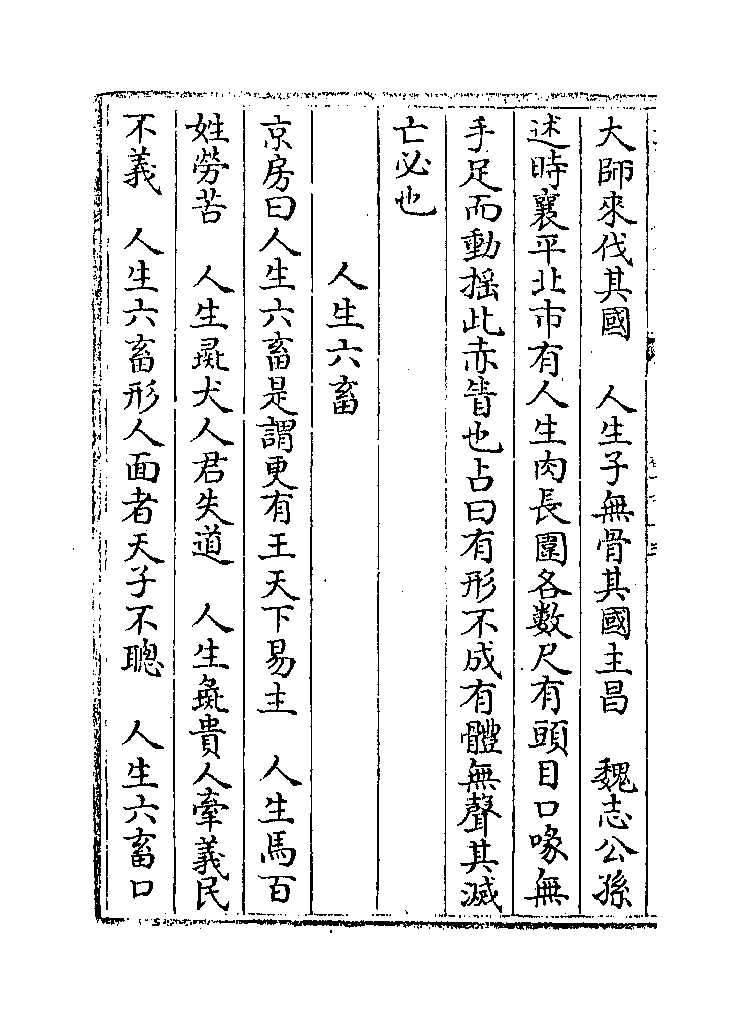 大師來伐其國　人生子無骨其國主昌　魏志公孫
述時襄平北市有人生肉長圍各數尺有頭目口喙無
手足而動揺此赤眚也占曰有形不成有體無聲其滅
亡必也
人生六畜
京房曰人生六畜是謂更有王天下易主　人生馬百
姓勞苦　人生彘犬人君失道　人生彘貴人牽義民
不義　人生六畜形人面者天子不聰　人生六畜口